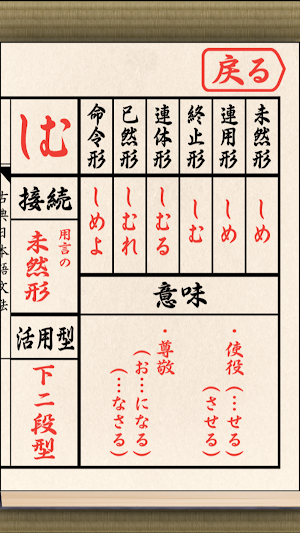 戻る
未然形
連用形
終止形
連体形
已然形
命令形
しむ
しめ
しめ
しむ
しむる
しむれ
しめよ
接続
用言の
未然形
意味
・使役（…せる）
（させる）
・尊敬
（お…になる）
（…なさる）
活用型
下二段型
古典日本語文法